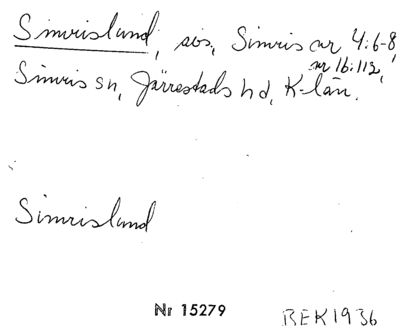 Simrislund, sos, Simris nr 4:6-8,
nr 16:112,
Simris sn, Järrestads hd, K-län.
Simrislund
Nr 15279 BEK1936